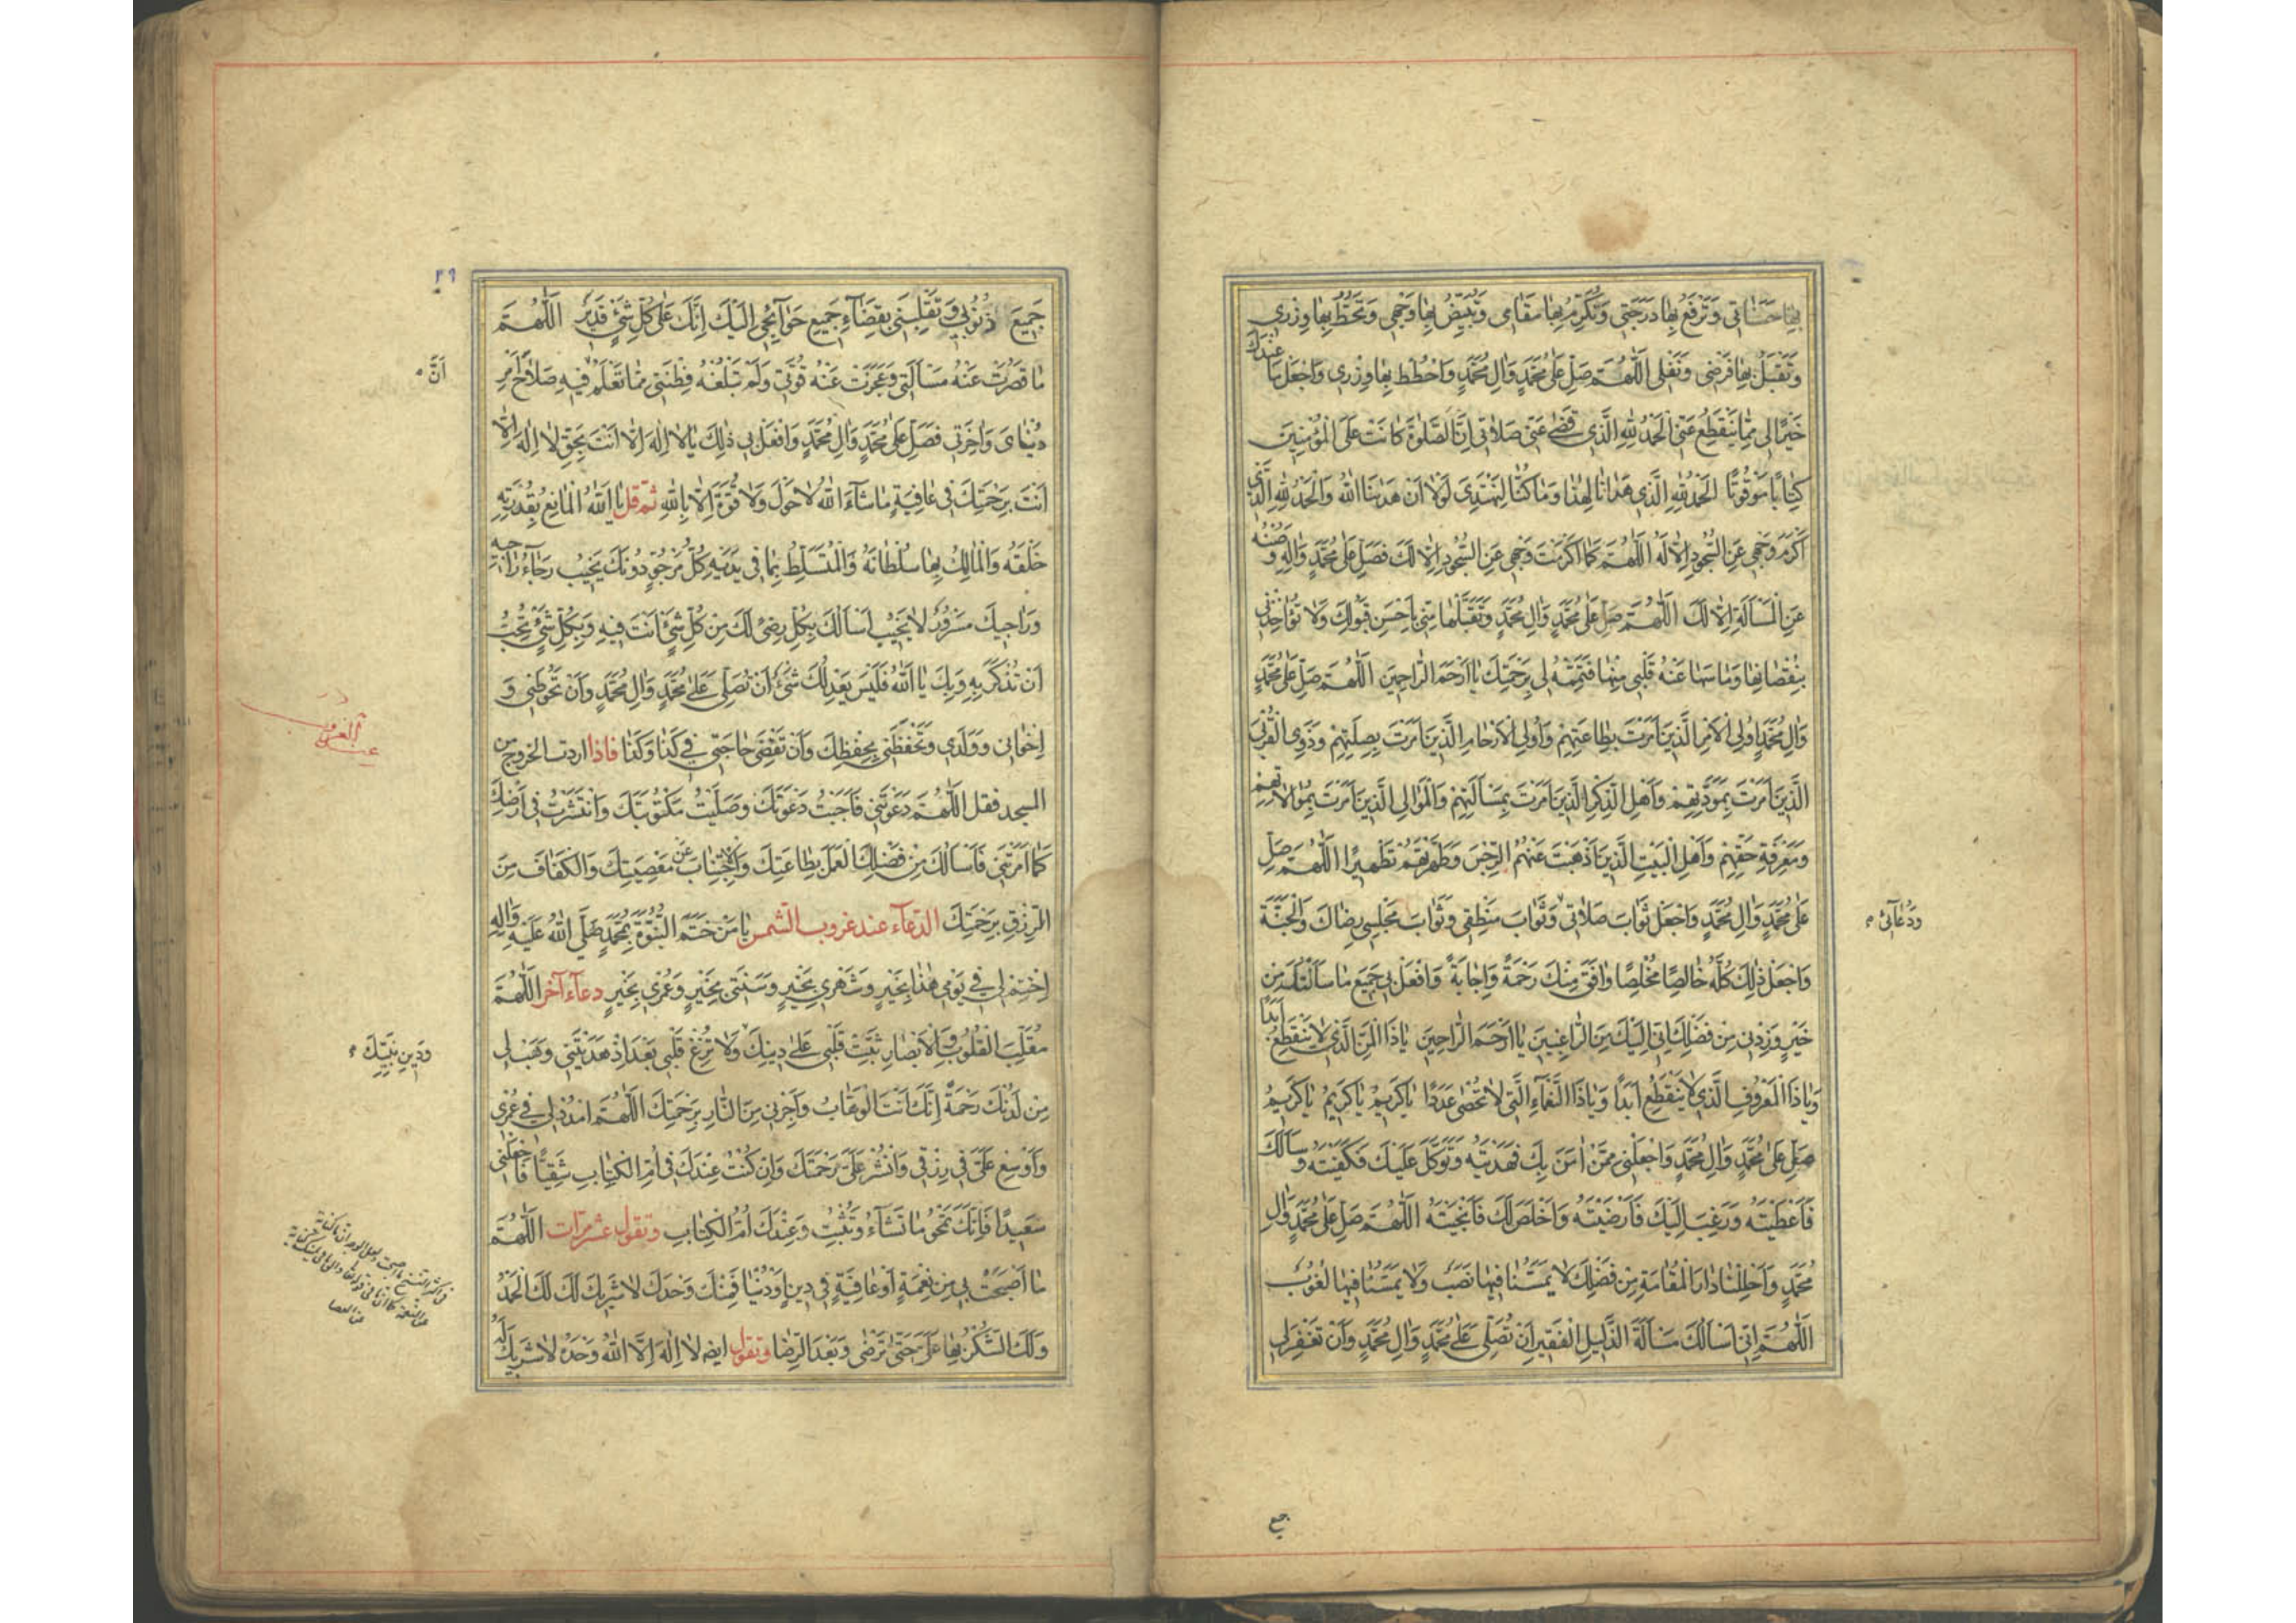 بِهَا حَسَنَاتِي وَتَرْفَعُ بِهَا دَرَجَتِي وَتُكْرِمُ بِهَا مَقَامِي وَتُبَيِّضُ بِهَا وَجْهِي وَتَحُطُّ بِهَا وِزْرِي
وَتَقْبَلُ بِهَا فَرْضِي وَنَفْلِي اَللّٰهُمَّ صَلِّ عَلٰى مُحَمَّدٍ وَاٰلِ مُحَمَّدٍ وَاحْطُطْ بِهَا وِزْرِي وَاجْعَلْ مَا عِنْدَكَ
خَيْرًا لِي مِمَّا يَنْقَطِعُ عَنِّي اَلْحَمْدُ لِلّٰهِ الَّذِي قَضٰى عَنِّي صَلَاتِي اِنَّ الصَّلٰوةَ كَانَتْ عَلَى الْمُؤْمِنِينَ
كِتَابًا مَوْقُوتًا اَلْحَمْدُ لِلّٰهِ الَّذِي هَدَانَا لِهٰذَا وَمَا كُنَّا لِنَهْتَدِيَ لَوْلَا اَنْ هَدٰينَا اللّٰهُ وَالْحَمْدُ لِلّٰهِ الَّذِي
اَكْرَمَ وَجْهِي عَنِ السُّجُودِ اِلَّا لَهُ اَللّٰهُمَّ كَمَا اَكْرَمْتَ وَجْهِي عَنِ السُّجُودِ اِلَّا لَكَ فَصَلِّ عَلٰى مُحَمَّدٍ وَاٰلِهِ وَصُنْهُ
عَنِ الْمَسْاَلَةِ اِلَّا لَكَ اَللّٰهُمَّ صَلِّ عَلٰى مُحَمَّدٍ وَاٰلِ مُحَمَّدٍ وَتَقَبَّلْهَا مِنِّي بِاَحْسَنِ قَبُولِكَ وَلَا تُؤَاخِذْنِي
بِنُقْصَانِهَا وَمَا سَهَا عَنْهُ قَلْبِي مِنْهَا فَتَمِّمْهُ لِي بِرَحْمَتِكَ يَا اَرْحَمَ الرَّاحِمِينَ اَللّٰهُمَّ صَلِّ عَلٰى مُحَمَّدٍ
وَاٰلِ مُحَمَّدٍ اُولِي الْاَمْرِ الَّذِينَ اَمَرْتَ بِطَاعَتِهِمْ وَاُولِي الْاَرْحَامِ الَّذِينَ اَمَرْتَ بِصِلَتِهِمْ وَذَوِي الْقُرْبٰى
الَّذِينَ اَمَرْتَ بِمَوَدَّتِهِمْ وَاَهْلِ الذِّكْرِ الَّذِينَ اَمَرْتَ بِمَسْاَلَتِهِمْ وَالْمَوَالِي الَّذِينَ اَمَرْتَ بِمُوَالَاتِهِمْ
وَمَعْرِفَةِ حَقِّهِمْ وَاَهْلِ الْبَيْتِ الَّذِينَ اَذْهَبْتَ عَنْهُمُ الرِّجْسَ وَطَهَّرْتَهُمْ تَطْهِيرًا اَللّٰهُمَّ صَلِّ
عَلٰى مُحَمَّدٍ وَاٰلِ مُحَمَّدٍ وَاجْعَلْ ثَوَابَ صَلَاتِي وَثَوَابَ مَنْطِقِي وَثَوَابَ مَجْلِسِي رِضَاكَ وَالْجَنَّةَ
وَدُعَآئِي
وَاجْعَلْ ذٰلِكَ كُلَّهُ خَالِصًا مُخْلَصًا وَافَقَ مِنْكَ رَحْمَةً وَاِجَابَةً وَافْعَلْ بِي جَمِيعَ مَا سَاَلْتُكَ مِنْ
خَيْرٍ وَزِدْنِي مِنْ فَضْلِكَ اِنِّي اِلَيْكَ مِنَ الرَّاغِبِينَ يَا اَرْحَمَ الرَّاحِمِينَ يَا ذَا الْمَنِّ الَّذِي لَا يَنْقَطِعُ اَبَدًا
وَيَا ذَا الْمَعْرُوفِ الَّذِي لَا يَنْقَطِعُ اَبَدًا وَيَا ذَا النَّعْمَآءِ الَّتِي لَا تُحْصٰى عَدَدًا يَا كَرِيمُ يَا كَرِيمُ يَا كَرِيمُ
صَلِّ عَلٰى مُحَمَّدٍ وَاٰلِ مُحَمَّدٍ وَاجْعَلْنِي مِمَّنْ اٰمَنَ بِكَ فَهَدَيْتَهُ وَتَوَكَّلَ عَلَيْكَ فَكَفَيْتَهُ وَسَاَلَكَ
فَاَعْطَيْتَهُ وَرَغِبَ اِلَيْكَ فَاَرْضَيْتَهُ وَاَخْلَصَ لَكَ فَاَنْجَيْتَهُ اَللّٰهُمَّ صَلِّ عَلٰى مُحَمَّدٍ وَاٰلِ
مُحَمَّدٍ وَاَحْلِلْنَا دَارَ الْمُقَامَةِ مِنْ فَضْلِكَ لَا يَمَسُّنَا فِيهَا نَصَبٌ وَلَا يَمَسُّنَا فِيهَا لُغُوبٌ
اَللّٰهُمَّ اِنِّي اَسْاَلُكَ مَسْاَلَةَ الذَّلِيلِ الْفَقِيرِ اَنْ تُصَلِّيَ عَلٰى مُحَمَّدٍ وَاٰلِ مُحَمَّدٍ وَاَنْ تَغْفِرَ لِي
جميع
٢٩
جَمِيعَ ذُنُوبِي وَتَقْلِبَنِي بِقَضَآءِ جَمِيعِ حَوَآئِجِي اِلَيْكَ اِنَّكَ عَلٰى كُلِّ شَيْءٍ قَدِيرٌ اَللّٰهُمَّ
مَا قَصُرَتْ عَنْهُ مَسْاَلَتِي وَعَجَزَتْ عَنْهُ قُوَّتِي وَلَمْ تَبْلُغْهُ فِطْنَتِي مِمَّا تَعْلَمُ فِيهِ صَلَاحَ اَمْرِ
اَنَّ
دُنْيَايَ وَاٰخِرَتِي فَصَلِّ عَلٰى مُحَمَّدٍ وَاٰلِ مُحَمَّدٍ وَافْعَلْ بِي ذٰلِكَ يَا لَا اِلٰهَ اِلَّا اَنْتَ بِحَقِّ لَا اِلٰهَ اِلَّا
اَنْتَ بِرَحْمَتِكَ فِي عَافِيَةٍ مَا شَآءَ اللّٰهُ لَا حَوْلَ وَلَا قُوَّةَ اِلَّا بِاللّٰهِ ثم قل يَا اَللّٰهُ الْمَانِعُ بِقُدْرَتِهِ
خَلْقَهُ وَالْمَالِكُ بِهَا سُلْطَانَهُ وَالْمُتَسَلِّطُ بِمَا فِي يَدَيْهِ كُلُّ مَرْجُوٍّ دُونَكَ يَخِيبُ رَجَآءُ رَاجِيهِ
وَرَاجِيكَ مَسْرُورٌ لَا يَخِيبُ اَسْاَلُكَ بِكُلِّ رِضًى لَكَ مِنْ كُلِّ شَيْءٍ اَنْتَ فِيهِ وَبِكُلِّ شَيْءٍ تُحِبُّ
اَنْ تُذْكَرَ بِهِ وَبِكَ يَا اَللّٰهُ فَلَيْسَ يَعْدِلُكَ شَيْءٌ اَنْ تُصَلِّيَ عَلٰى مُحَمَّدٍ وَاٰلِ مُحَمَّدٍ وَاَنْ تَحُوطَنِي وَ
اِخْوَانِي وَوَلَدِي وَتَحْفَظَنِي بِحِفْظِكَ وَاَنْ تَقْضِيَ حَاجَتِي فِي كَذَا وَكَذَا فاذا اردت الخروج من
المسجد فقل اَللّٰهُمَّ دَعَوْتَنِي فَاَجَبْتُ دَعْوَتَكَ وَصَلَّيْتُ مَكْتُوبَتَكَ وَانْتَشَرْتُ فِي اَرْضِكَ
كَمَا اَمَرْتَنِي فَاَسْاَلُكَ مِنْ فَضْلِكَ الْعَمَلَ بِطَاعَتِكَ وَالْاِجْتِنَابَ عَنْ مَعْصِيَتِكَ وَالْكَفَافَ مِنَ
الرِّزْقِ بِرَحْمَتِكَ الدعآء عند غروب الشمس يَا مَنْ خَتَمَ النُّبُوَّةَ بِمُحَمَّدٍ صَلَّى اللّٰهُ عَلَيْهِ وَاٰلِهِ
اِخْتِمْ لِي فِي يَوْمِي هٰذَا بِخَيْرٍ وَشَهْرِي بِخَيْرٍ وَسَنَتِي بِخَيْرٍ وَعُمْرِي بِخَيْرٍ دعآء آخر اَللّٰهُمَّ
مُقَلِّبَ الْقُلُوبِ وَالْاَبْصَارِ ثَبِّتْ قَلْبِي عَلٰى دِينِكَ وَلَا تُزِغْ قَلْبِي بَعْدَ اِذْ هَدَيْتَنِي وَهَبْ لِي
وَدِينِ نَبِيِّكَ
مِنْ لَدُنْكَ رَحْمَةً اِنَّكَ اَنْتَ الْوَهَّابُ وَاَجِرْنِي مِنَ النَّارِ بِرَحْمَتِكَ اَللّٰهُمَّ امْدُدْ لِي فِي عُمْرِي
وَاَوْسِعْ عَلَيَّ فِي رِزْقِي وَانْشُرْ عَلَيَّ رَحْمَتَكَ وَاِنْ كُنْتُ عِنْدَكَ فِي اُمِّ الْكِتَابِ شَقِيًّا فَاجْعَلْنِي
سَعِيدًا فَاِنَّكَ تَمْحُو مَا تَشَآءُ وَتُثْبِتُ وَعِنْدَكَ اُمُّ الْكِتَابِ وتقول عشر مرات اَللّٰهُمَّ
مَا اَصْبَحَتْ بِي مِنْ نِعْمَةٍ اَوْ عَافِيَةٍ فِي دِينٍ اَوْ دُنْيَا فَمِنْكَ وَحْدَكَ لَا شَرِيكَ لَكَ لَكَ الْحَمْدُ
وَلَكَ الشُّكْرُ بِهَا عَلَيَّ حَتّٰى تَرْضٰى وَبَعْدَ الرِّضَا وتقول ايضا لَا اِلٰهَ اِلَّا اللّٰهُ وَحْدَهُ لَا شَرِيكَ لَهُ